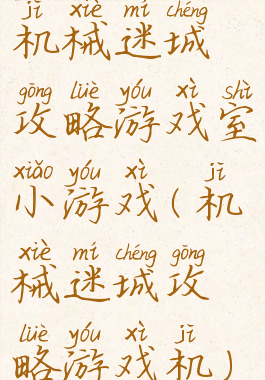 jī xiè mí chéng
机械迷城
gōng lüè yóu xì shì
攻略游戏室
xiǎo yóu xì jī
小游戏(机
xiè mí chéng gōng
械迷城攻
lüè yóu xì jī
略游戏机)